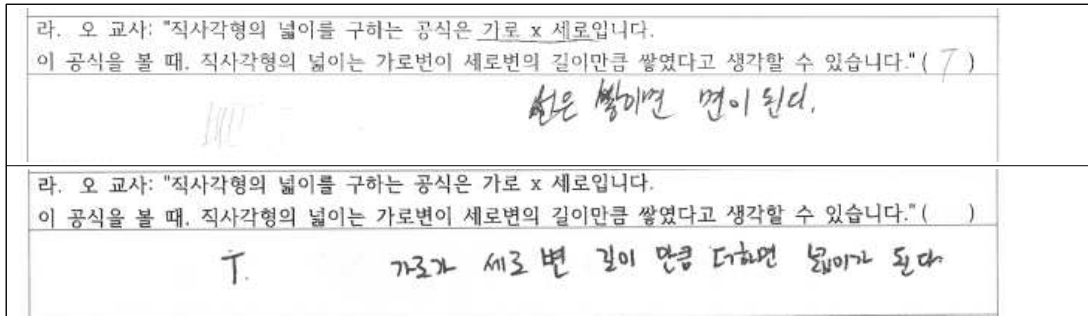 라. 오 교사: "직사각형의 넓이를 구하는 공식은 가로 x 세로입니다.
이 공식을 볼 때. 직사각형의 넓이는 가로변이 세로변의 길이만큼 쌓였다고 생각할 수 있습니다." ( T )
선은 쌓이면 면이 된다.
라. 오 교사: "직사각형의 넓이를 구하는 공식은 가로 x 세로입니다.
이 공식을 볼 때. 직사각형의 넓이는 가로변이 세로변의 길이만큼 쌓였다고 생각할 수 있습니다." ( )
T. 가로가 세로 변 길이 만큼 더하면 넓이가 된다